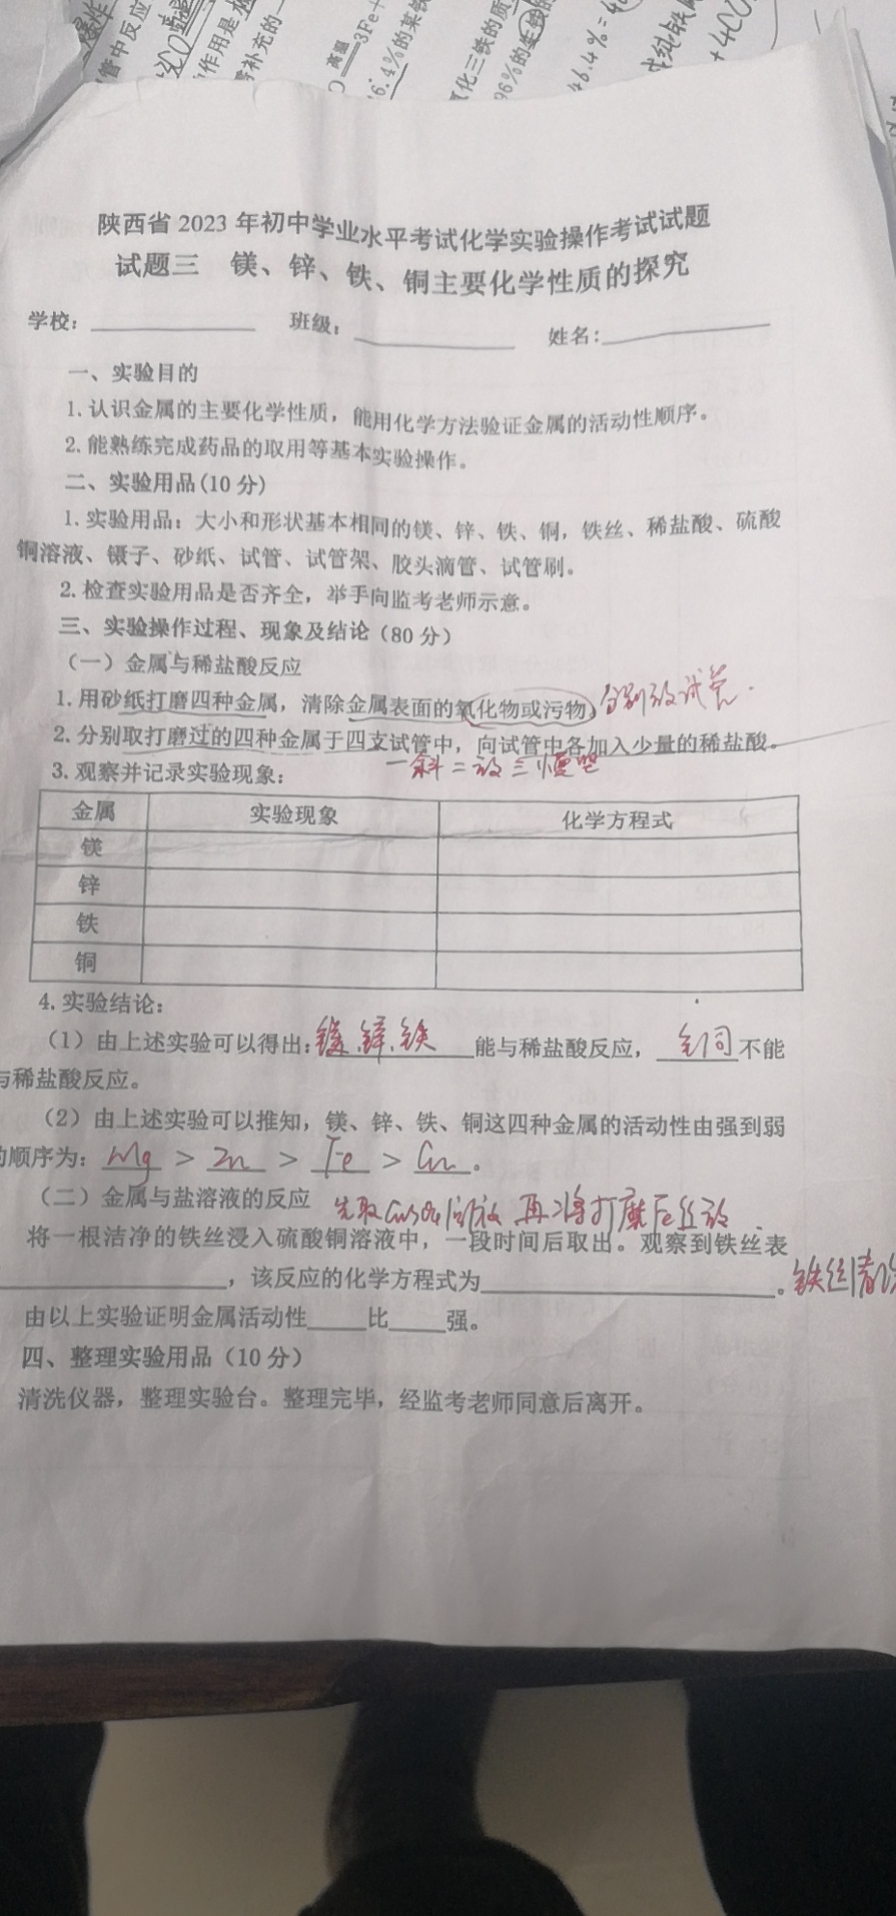 管中反应
作用是
需补充的一
高温
3Fe+
6.4%的某铁
氧化三铁的质
96%的
陕西省 2023 年初中学业水平考试化学实验操作考试试题
试题三 镁、锌、铁、铜主要化学性质的探究
学校： 班级： 姓名：
一、实验目的
1.认识金属的主要化学性质，能用化学方法验证金属的活动性顺序。
2.能熟练完成药品的取用等基本实验操作。
二、实验用品(10 分)
1.实验用品：大小和形状基本相同的镁、锌、铁、铜，铁丝、稀盐酸、硫酸
铜溶液、镊子、砂纸、试管、试管架、胶头滴管、试管刷。
2.检查实验用品是否齐全，举手向监考老师示意。
三、实验操作过程、现象及结论（80 分）
（一）金属与稀盐酸反应
1.用砂纸打磨四种金属，清除金属表面的氧化物或污物。分别放试管.
2.分别取打磨过的四种金属于四支试管中，向试管中各加入少量的稀盐酸。
一斜二放三慢竖
3.观察并记录实验现象：
金属 实验现象 化学方程式
镁
锌
铁
铜
4.实验结论：
（1）由上述实验可以得出：镁、锌、铁能与稀盐酸反应，铜不能
与稀盐酸反应。
（2）由上述实验可以推知，镁、锌、铁、铜这四种金属的活动性由强到弱
的顺序为：Mg > Zn > Fe > Cu。
（二）金属与盐溶液的反应 先取CuSO4 再将打磨Fe丝放
将一根洁净的铁丝浸入硫酸铜溶液中，一段时间后取出。观察到铁丝表
，该反应的化学方程式为 。铁丝
由以上实验证明金属活动性 比 强。
四、整理实验用品（10 分）
清洗仪器，整理实验台。整理完毕，经监考老师同意后离开。